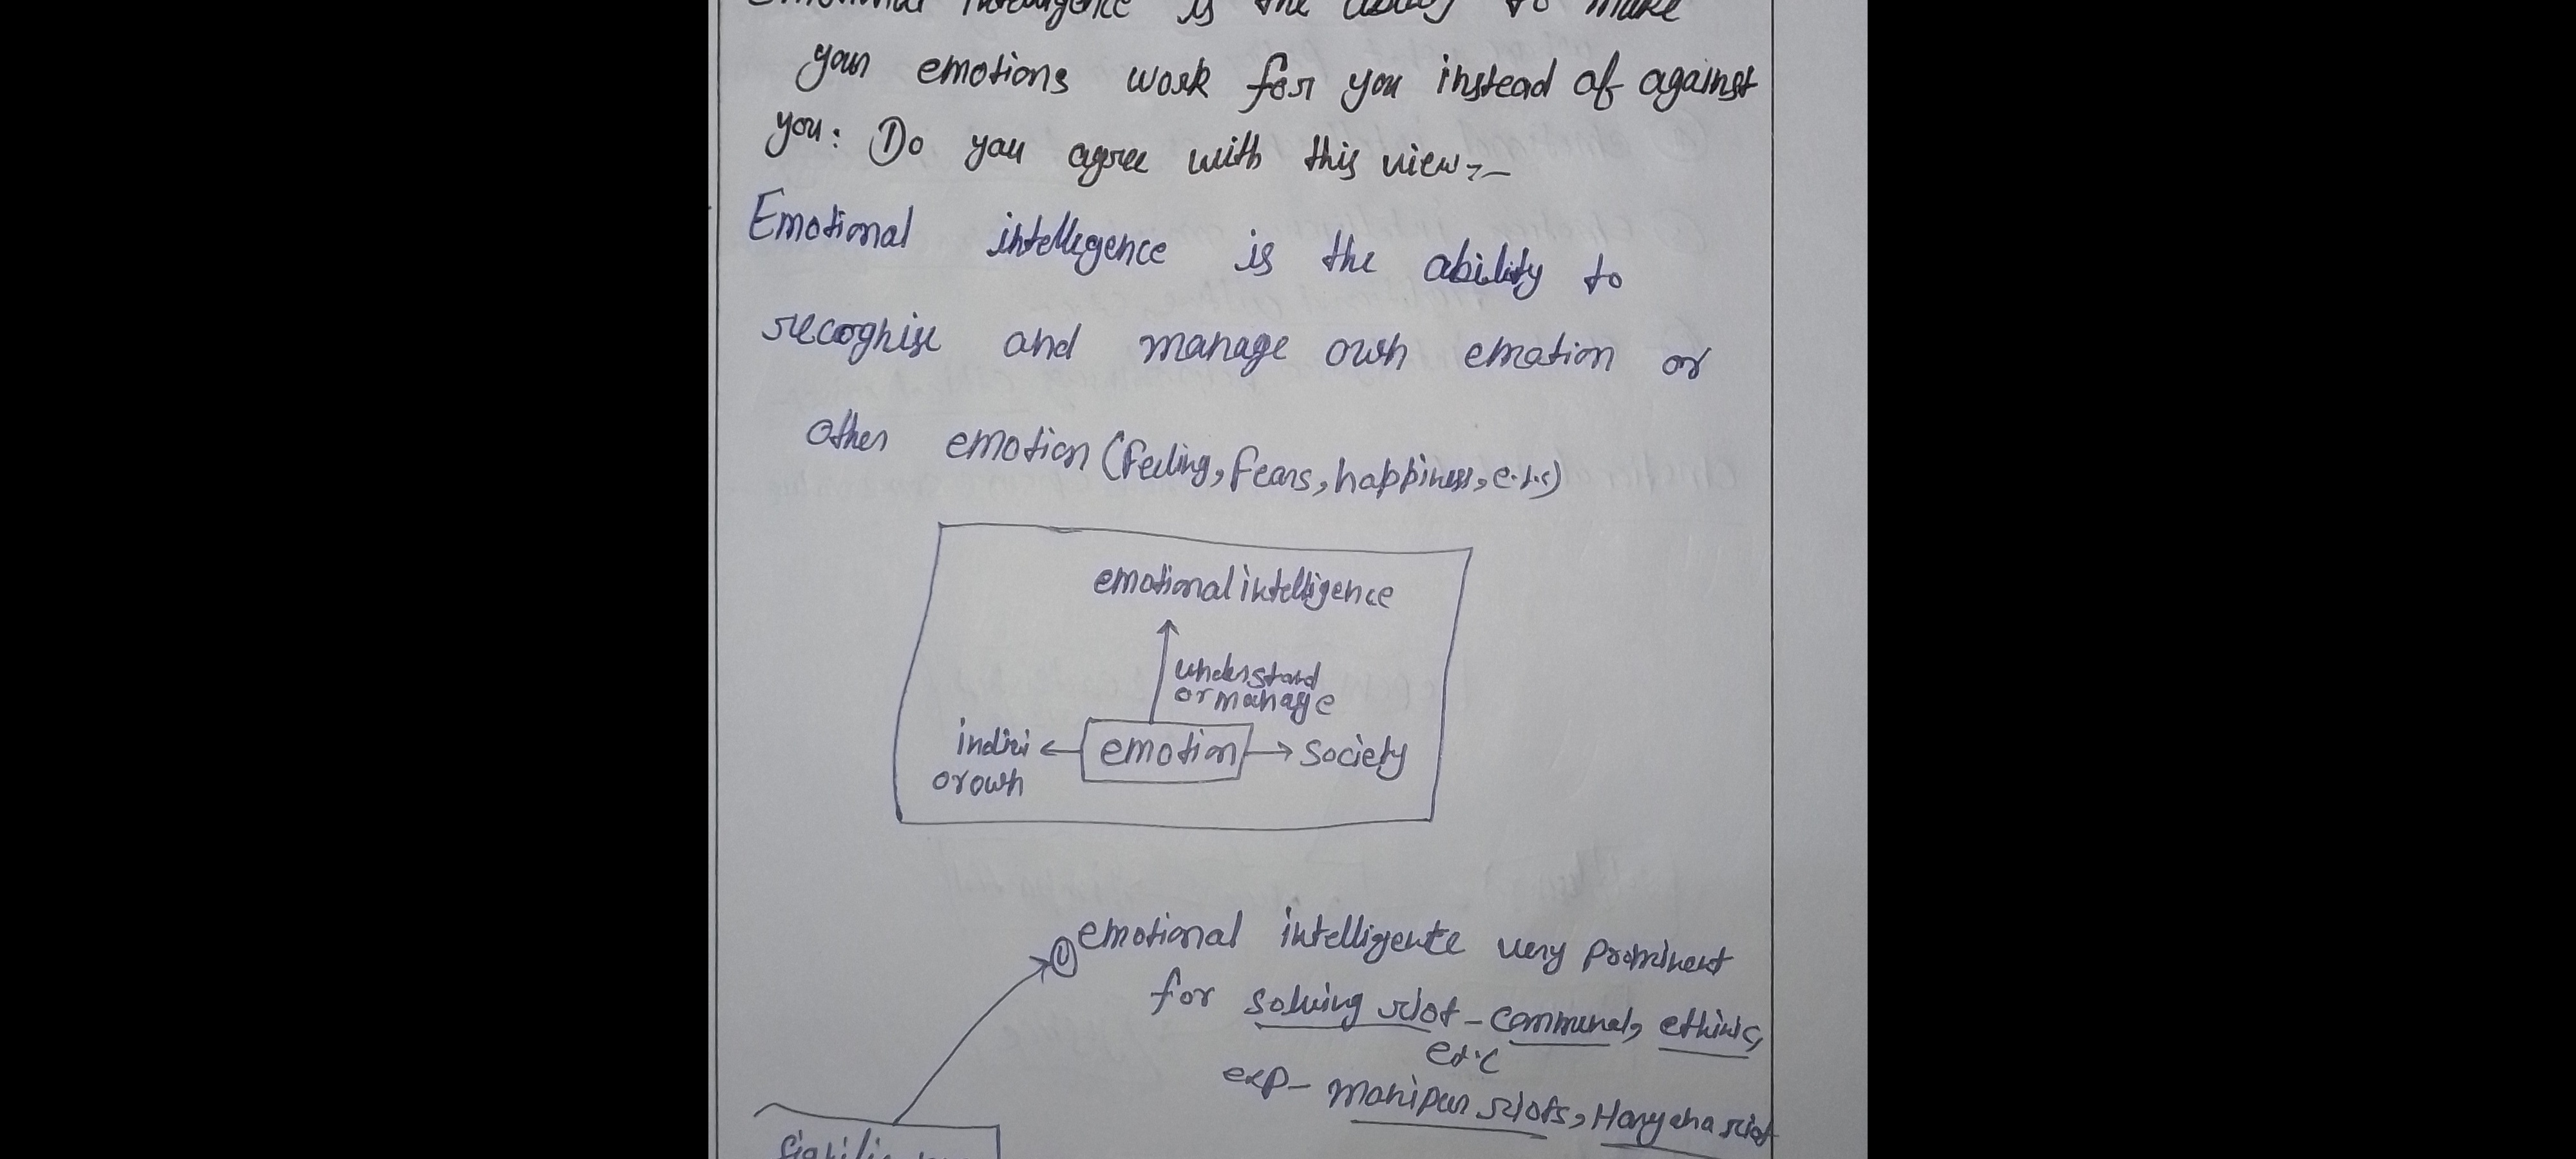 Emotional intelligence is the ability to make
your emotions work for you instead of against
you: Do you agree with this view:-
Emotional intelligence is the ability to
recognise and manage own emotion or
other emotion (feeling, fears, happiness, e.t.c)
emotional intelligence
understand
or manage
indivi ← emotion → society
or own
① emotional intelligence very prominent
for solving riot - communal, ethinic,
etc
exp- manipur riots, Haryana riot